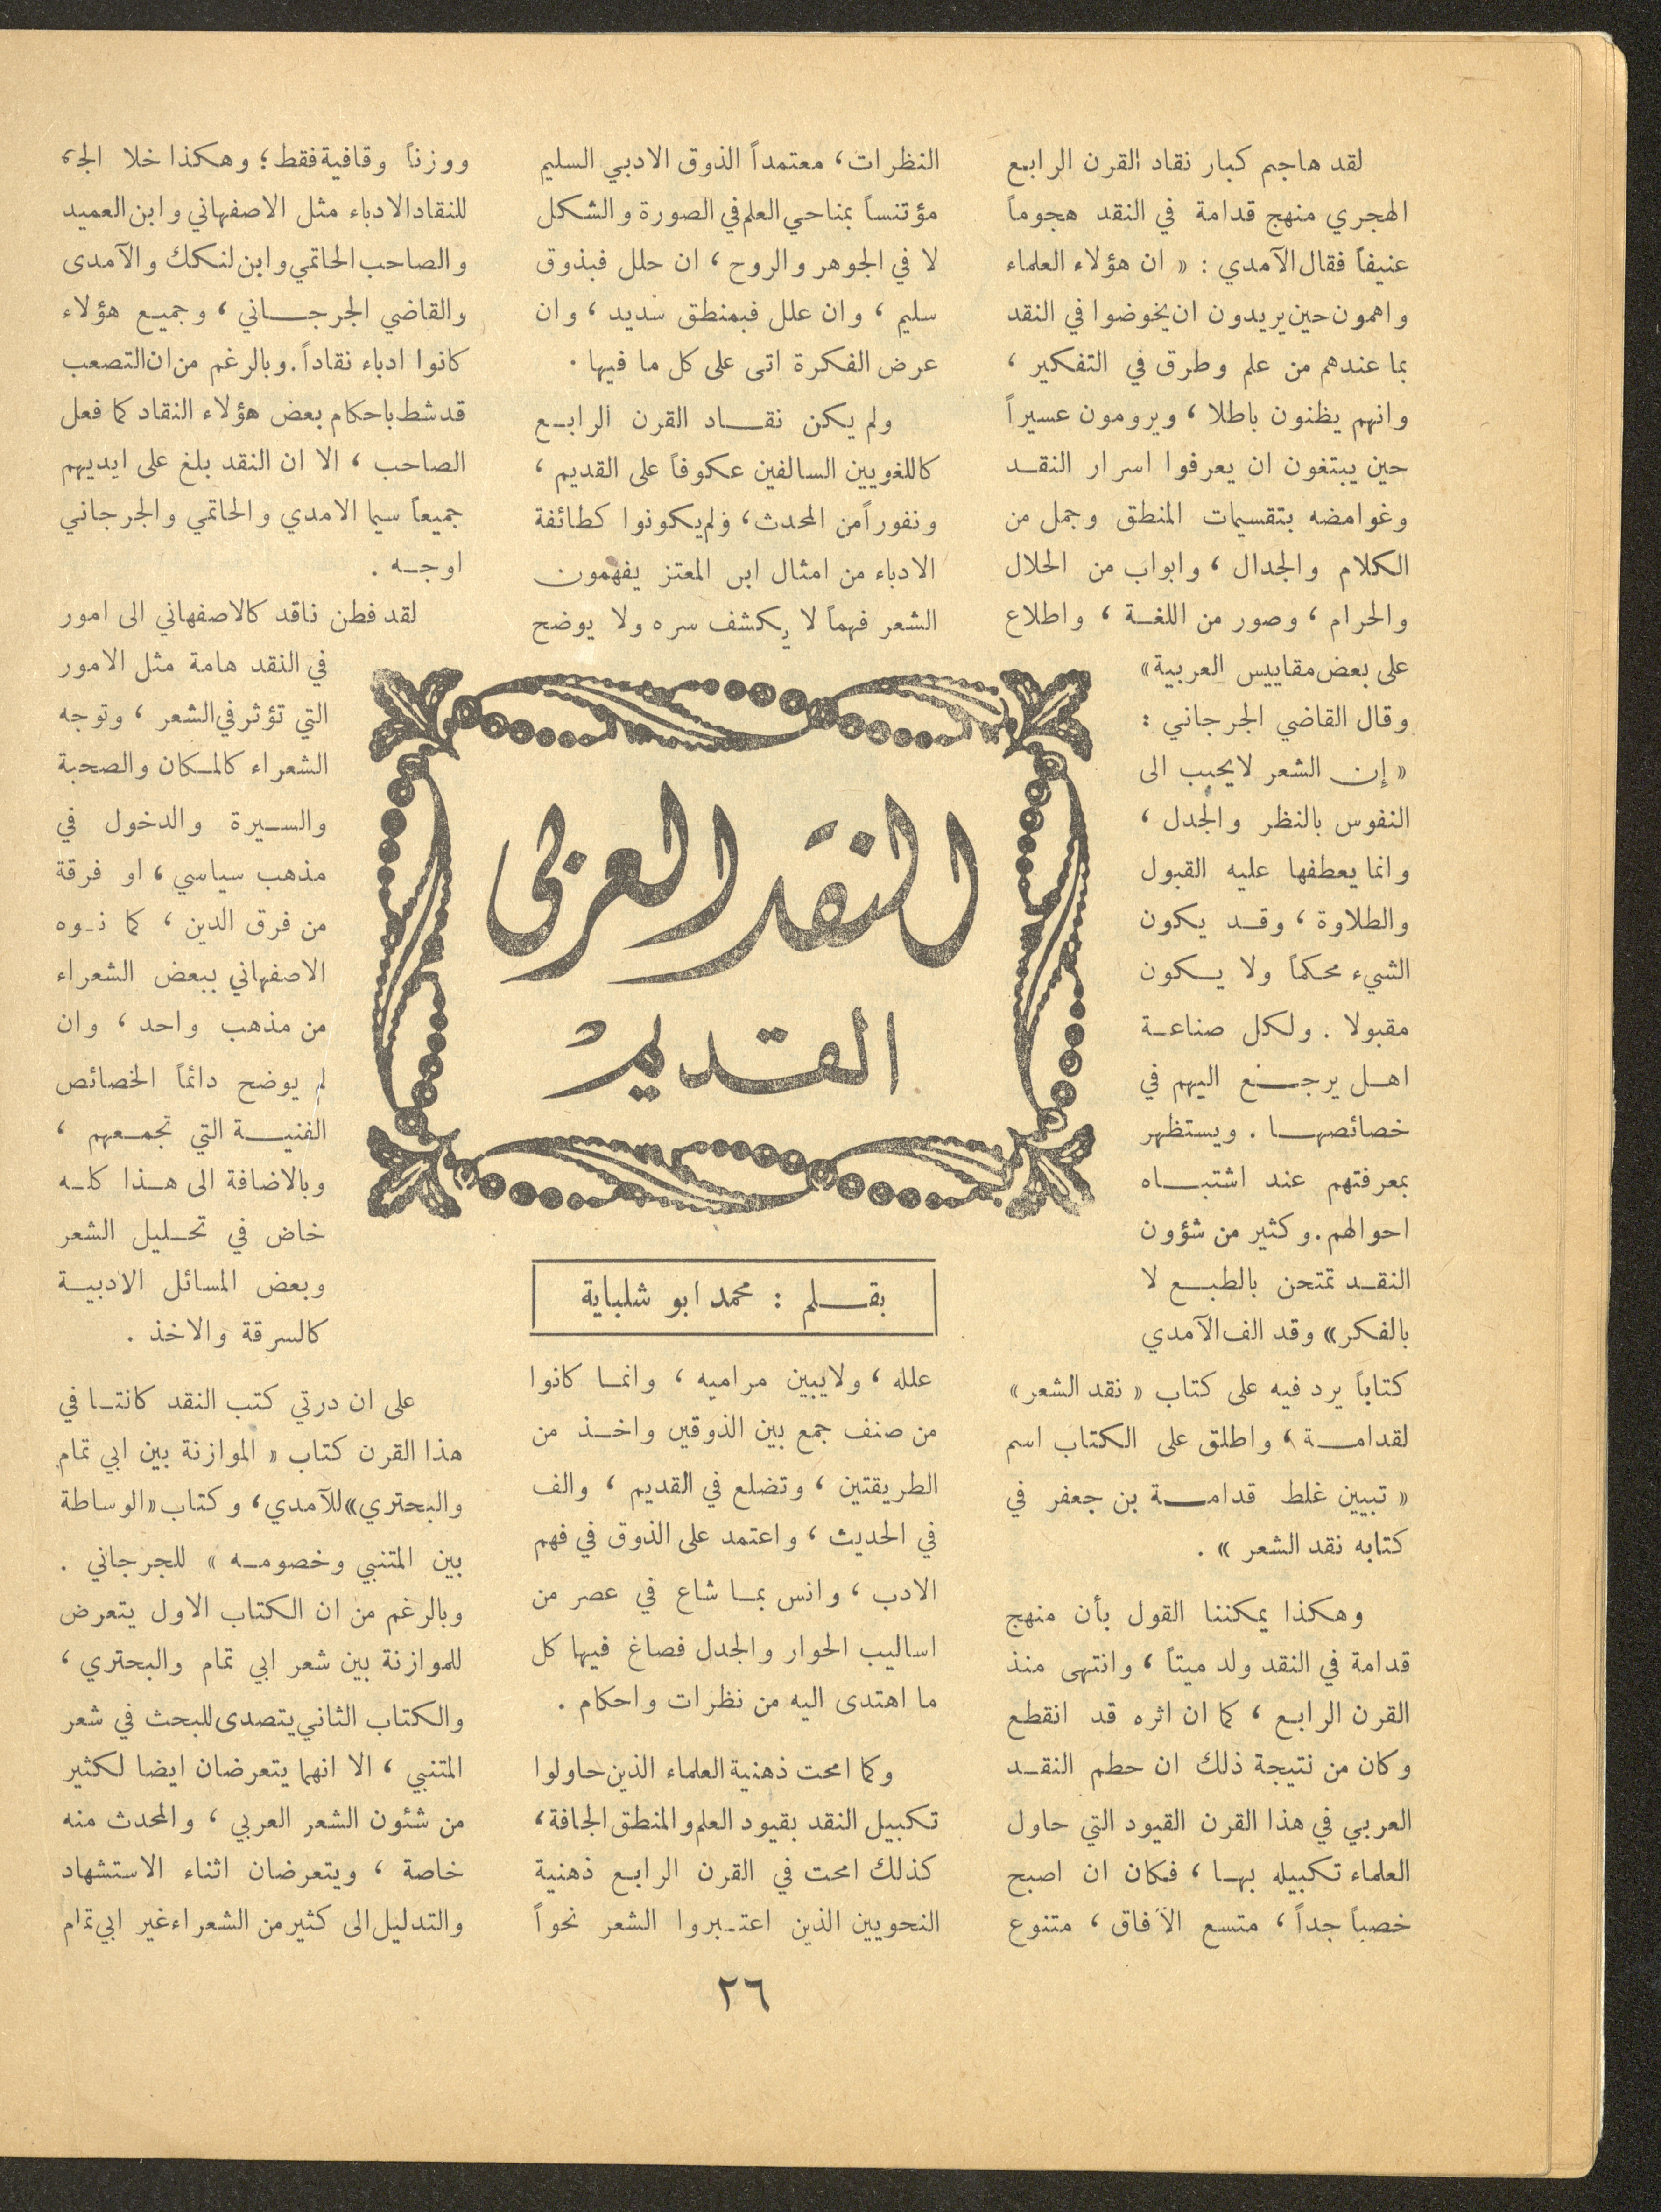 النقد العربي
القديم
بقلم : محمد ابو شلباية
لقد هاجم كبار نقاد القرن الرابع
الهجري منهج قدامة في النقد هجوماً
عنيفاً فقال الآمدي : « ان هؤلاء العلماء
واهمون حين يريدون ان يخوضوا في النقد
بما عندهم من علم وطرق في التفكير ،
وانهم يظنون باطلا ، ويرومون عسيراً
حين يبتغون ان يعرفوا اسرار النقد
وغوامضه بتقسيمات المنطق وجمل من
الكلام والجدال ، وابواب من الحلال
والحرام ، وصور من اللغة ، واطلاع
على بعض مقاييس العربية»
وقال القاضي الجرجاني :
« إن الشعر لا يحبب الى
النفوس بالنظر والجدل ،
وانما يعطفها عليه القبول
والطلاوة ، وقد يكون
الشيء محكماً ولا يكون
مقبولا . ولكل صناعة
اهل يرجع اليهم في
خصائصها . ويستظهر
بمعرفتهم عند اشتباه
احوالهم . وكثير من شؤون
النقد تمتحن بالطبع لا
بالفكر» وقد الف الآمدي
كتاباً يرد فيه على كتاب « نقد الشعر»
لقدامة ، واطلق على الكتاب اسم
« تبيين غلط قدامة بن جعفر في
كتابه نقد الشعر » .
وهكذا يمكننا القول بأن منهج
قدامة في النقد ولد ميتاً ، وانتهى منذ
القرن الرابع ، كما ان اثره قد انقطع
وكان من نتيجة ذلك ان حطم النقد
العربي في هذا القرن القيود التي حاول
العلماء تكبيله بها ، فكان ان اصبح
خصباً جداً ، متسع الآفاق ، متنوع
النظرات ، معتمداً الذوق الادبي السليم
مؤتنساً بمناحي العلم في الصورة والشكل
لا في الجوهر والروح ، ان حلل فبذوق
سليم ، وان علل فبمنطق سديد ، وان
عرض الفكرة اتى على كل ما فيها .
ولم يكن نقاد القرن الرابع
كاللغويين السالفين عكوفاً على القديم ،
ونفوراً من المحدث ، ولم يكونوا كطائفة
الادباء من امثال ابن المعتز يفهمون
الشعر فهماً لا يكشف سره ولا يوضح
علله ، ولا يبين مراميه ، وانما كانوا
من صنف جمع بين الذوقين واخذ من
الطريقتين ، وتضلع في القديم ، والف
في الحديث ، واعتمد على الذوق في فهم
الادب ، وانس بما شاع في عصر من
اساليب الحوار والجدل فصاغ فيها كل
ما اهتدى اليه من نظرات واحكام .
وكما امحت ذهنية العلماء الذين حاولوا
تكبيل النقد بقيود العلم والمنطق الجافة ،
كذلك امحت في القرن الرابع ذهنية
النحويين الذين اعتبروا الشعر نحواً
ووزناً وقافية فقط ؛ وهكذا خلا
للنقاد الادباء مثل الاصفهاني وابن العميد
والصاحب الحاتمي وابن لنكك والآمدى
والقاضي الجرجاني ، وجميع هؤلاء
كانوا ادباء نقاداً . وبالرغم من ان التصعب
قد شط باحكام بعض هؤلاء النقاد كما فعل
الصاحب ، الا ان النقد بلغ على ايديهم
جميعاً سيما الامدي والحاتمي والجرجاني
اوجه .
لقد فطن ناقد كالاصفهاني الى امور
في النقد هامة مثل الامور
التي تؤثر في الشعر ، وتوجه
الشعراء كالمكان والصحبة
والسيرة والدخول في
مذهب سياسي ، او فرقة
من فرق الدين ، كما نوه
الاصفهاني ببعض الشعراء
من مذهب واحد ، وان
لم يوضح دائماً الخصائص
الفنية التي تجمعهم ،
وبالاضافة الى هذا كله
خاض في تحليل الشعر
وبعض المسائل الادبية
كالسرقة والاخذ .
على ان درتي كتب النقد كانتا في
هذا القرن كتاب « الموازنة بين ابي تمام
والبحتري» للآمدي ، وكتاب «الوساطة
بين المتنبي وخصومه » للجرجاني .
وبالرغم من ان الكتاب الاول يتعرض
للموازنة بين شعر ابي تمام والبحتري ،
والكتاب الثاني يتصدى للبحث في شعر
المتنبي ، الا انهما يتعرضان ايضا لكثير
من شئون الشعر العربي ، والمحدث منه
خاصة ، ويتعرضان اثناء الاستشهاد
والتدليل الى كثير من الشعراء غير ابي تمام
٢٦